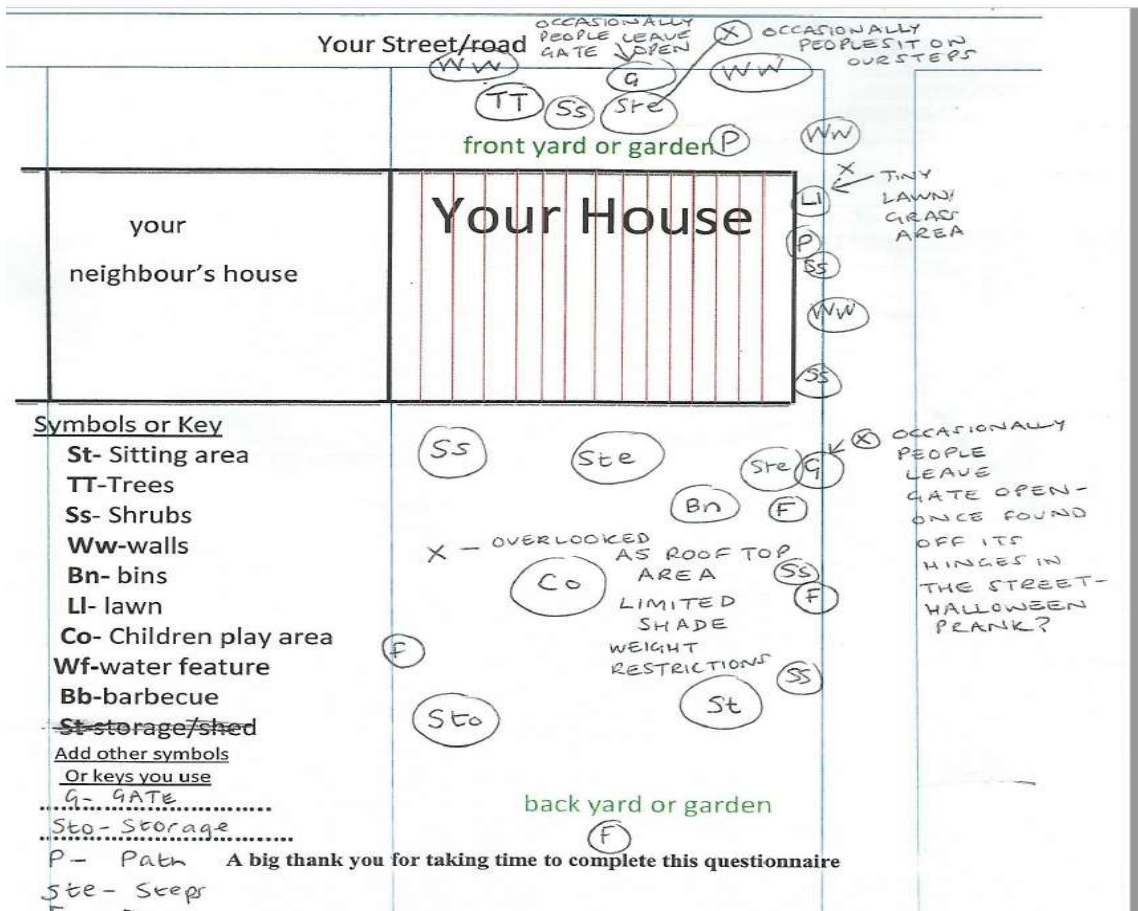 OCCASIONALLY
PEOPLE LEAVE
GATE OPEN
X OCCASIONALLY
PEOPLE SIT ON
OUR STEPS
Your Street/road
WW
G
WW
TT
Ss
Ste
front yard or garden
P
Ww
your
neighbour's house
Your House
X
TINY
LAWN/
GRASS
AREA
Ll
P
Ss
Ww
Ss
Symbols or Key
St- Sitting area
TT-Trees
Ss- Shrubs
Ww-walls
Bn- bins
Ll- lawn
Co- Children play area
Wf-water feature
Bb-barbecue
St-storage/shed
Add other symbols
Or keys you use
G- GATE
Sto- Storage
P- Path
Ste- Steps
Ss
Ste
Ste
G
X OCCASIONALLY
PEOPLE
LEAVE
GATE OPEN-
ONCE FOUND
OFF ITS
HINGES IN
THE STREET-
HALLOWEEN
PRANK?
Bn
F
X - OVERLOOKED
AS ROOF TOP
AREA
LIMITED
SHADE
WEIGHT
RESTRICTIONS
Co
Ss
F
F
Ss
Sto
St
back yard or garden
F
A big thank you for taking time to complete this questionnaire